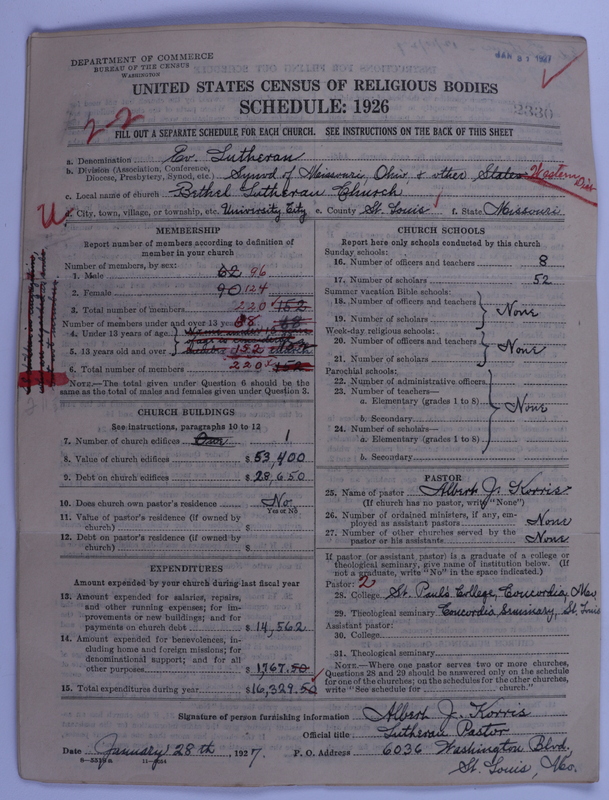 DEPARTMENT OF COMMERCE
BUREAU OF THE CENSUS
WASHINGTON
UNITED STATES CENSUS OF RELIGIOUS BODIES
SCHEDULE: 1926
2330
2-2
FILL OUT A SEPARATE SCHEDULE FOR EACH CHURCH. SEE INSTRUCTIONS ON THE BACK OF THIS SHEET
a. Denomination Ev. Lutheran
b. Division (Association, Conference, Diocese, Presbytery, Synod, etc.) Synod of Missouri, Ohio, & other States Western Dist
c. Local name of church Bethel Lutheran Church
d. City, town, village, or township, etc. University City e. County St. Louis f. State Missouri
MEMBERSHIP
Report number of members according to definition of member in your church
Number of members, by sex:
1. Male 62 96
2. Female 90 124
3. Total number of members 220 152
Number of members under and over 13 years 68
4. Under 13 years of age
5. 13 years old and over 152
6. Total number of members 220 152
NOTE.—The total given under Question 6 should be the same as the total of males and females given under Question 3.
CHURCH BUILDINGS
See instructions, paragraphs 10 to 12
7. Number of church edifices One 1
8. Value of church edifices $ 53,400
9. Debt on church edifices $ 28,650
10. Does church own pastor's residence? No
Yes or No
11. Value of pastor's residence (if owned by church) $
12. Debt on pastor's residence (if owned by church) $
EXPENDITURES
Amount expended by your church during last fiscal year
13. Amount expended for salaries, repairs, and other running expenses; for improvements or new buildings; and for payments on church debt $ 14,562
14. Amount expended for benevolences, including home and foreign missions; for denominational support; and for all other purposes $ 1,767.50
15. Total expenditures during year $ 16,329.50
CHURCH SCHOOLS
Report here only schools conducted by this church
Sunday schools:
16. Number of officers and teachers 8
17. Number of scholars 52
Summer vacation Bible schools:
18. Number of officers and teachers
19. Number of scholars
None
Week-day religious schools:
20. Number of officers and teachers
21. Number of scholars
None
Parochial schools:
22. Number of administrative officers
23. Number of teachers—
a. Elementary (grades 1 to 8)
b. Secondary
24. Number of scholars—
a. Elementary (grades 1 to 8)
b. Secondary
None
PASTOR
25. Name of pastor Albert J. Korris
(If church has no pastor, write "None")
26. Number of ordained ministers, if any, employed as assistant pastors None
27. Number of other churches served by the pastor or his assistant None
If pastor (or assistant pastor) is a graduate of a college or theological seminary, give name of institution below. (If not a graduate, write "No" in the space indicated.)
Pastor: 2
28. College St. Paul's College, Concordia, Mo.
29. Theological seminary Concordia Seminary, St. Louis
Assistant pastor:
30. College
31. Theological seminary
NOTE.—Where one pastor serves two or more churches, Questions 28 and 29 should be answered only on the schedule for one of the churches; on the schedules for the other churches, write "See schedule for church."
Signature of person furnishing information Albert J. Korris
Official title Lutheran Pastor
Date January 28th, 1927. P. O. Address 6036 Washington Blvd.
St. Louis, Mo.